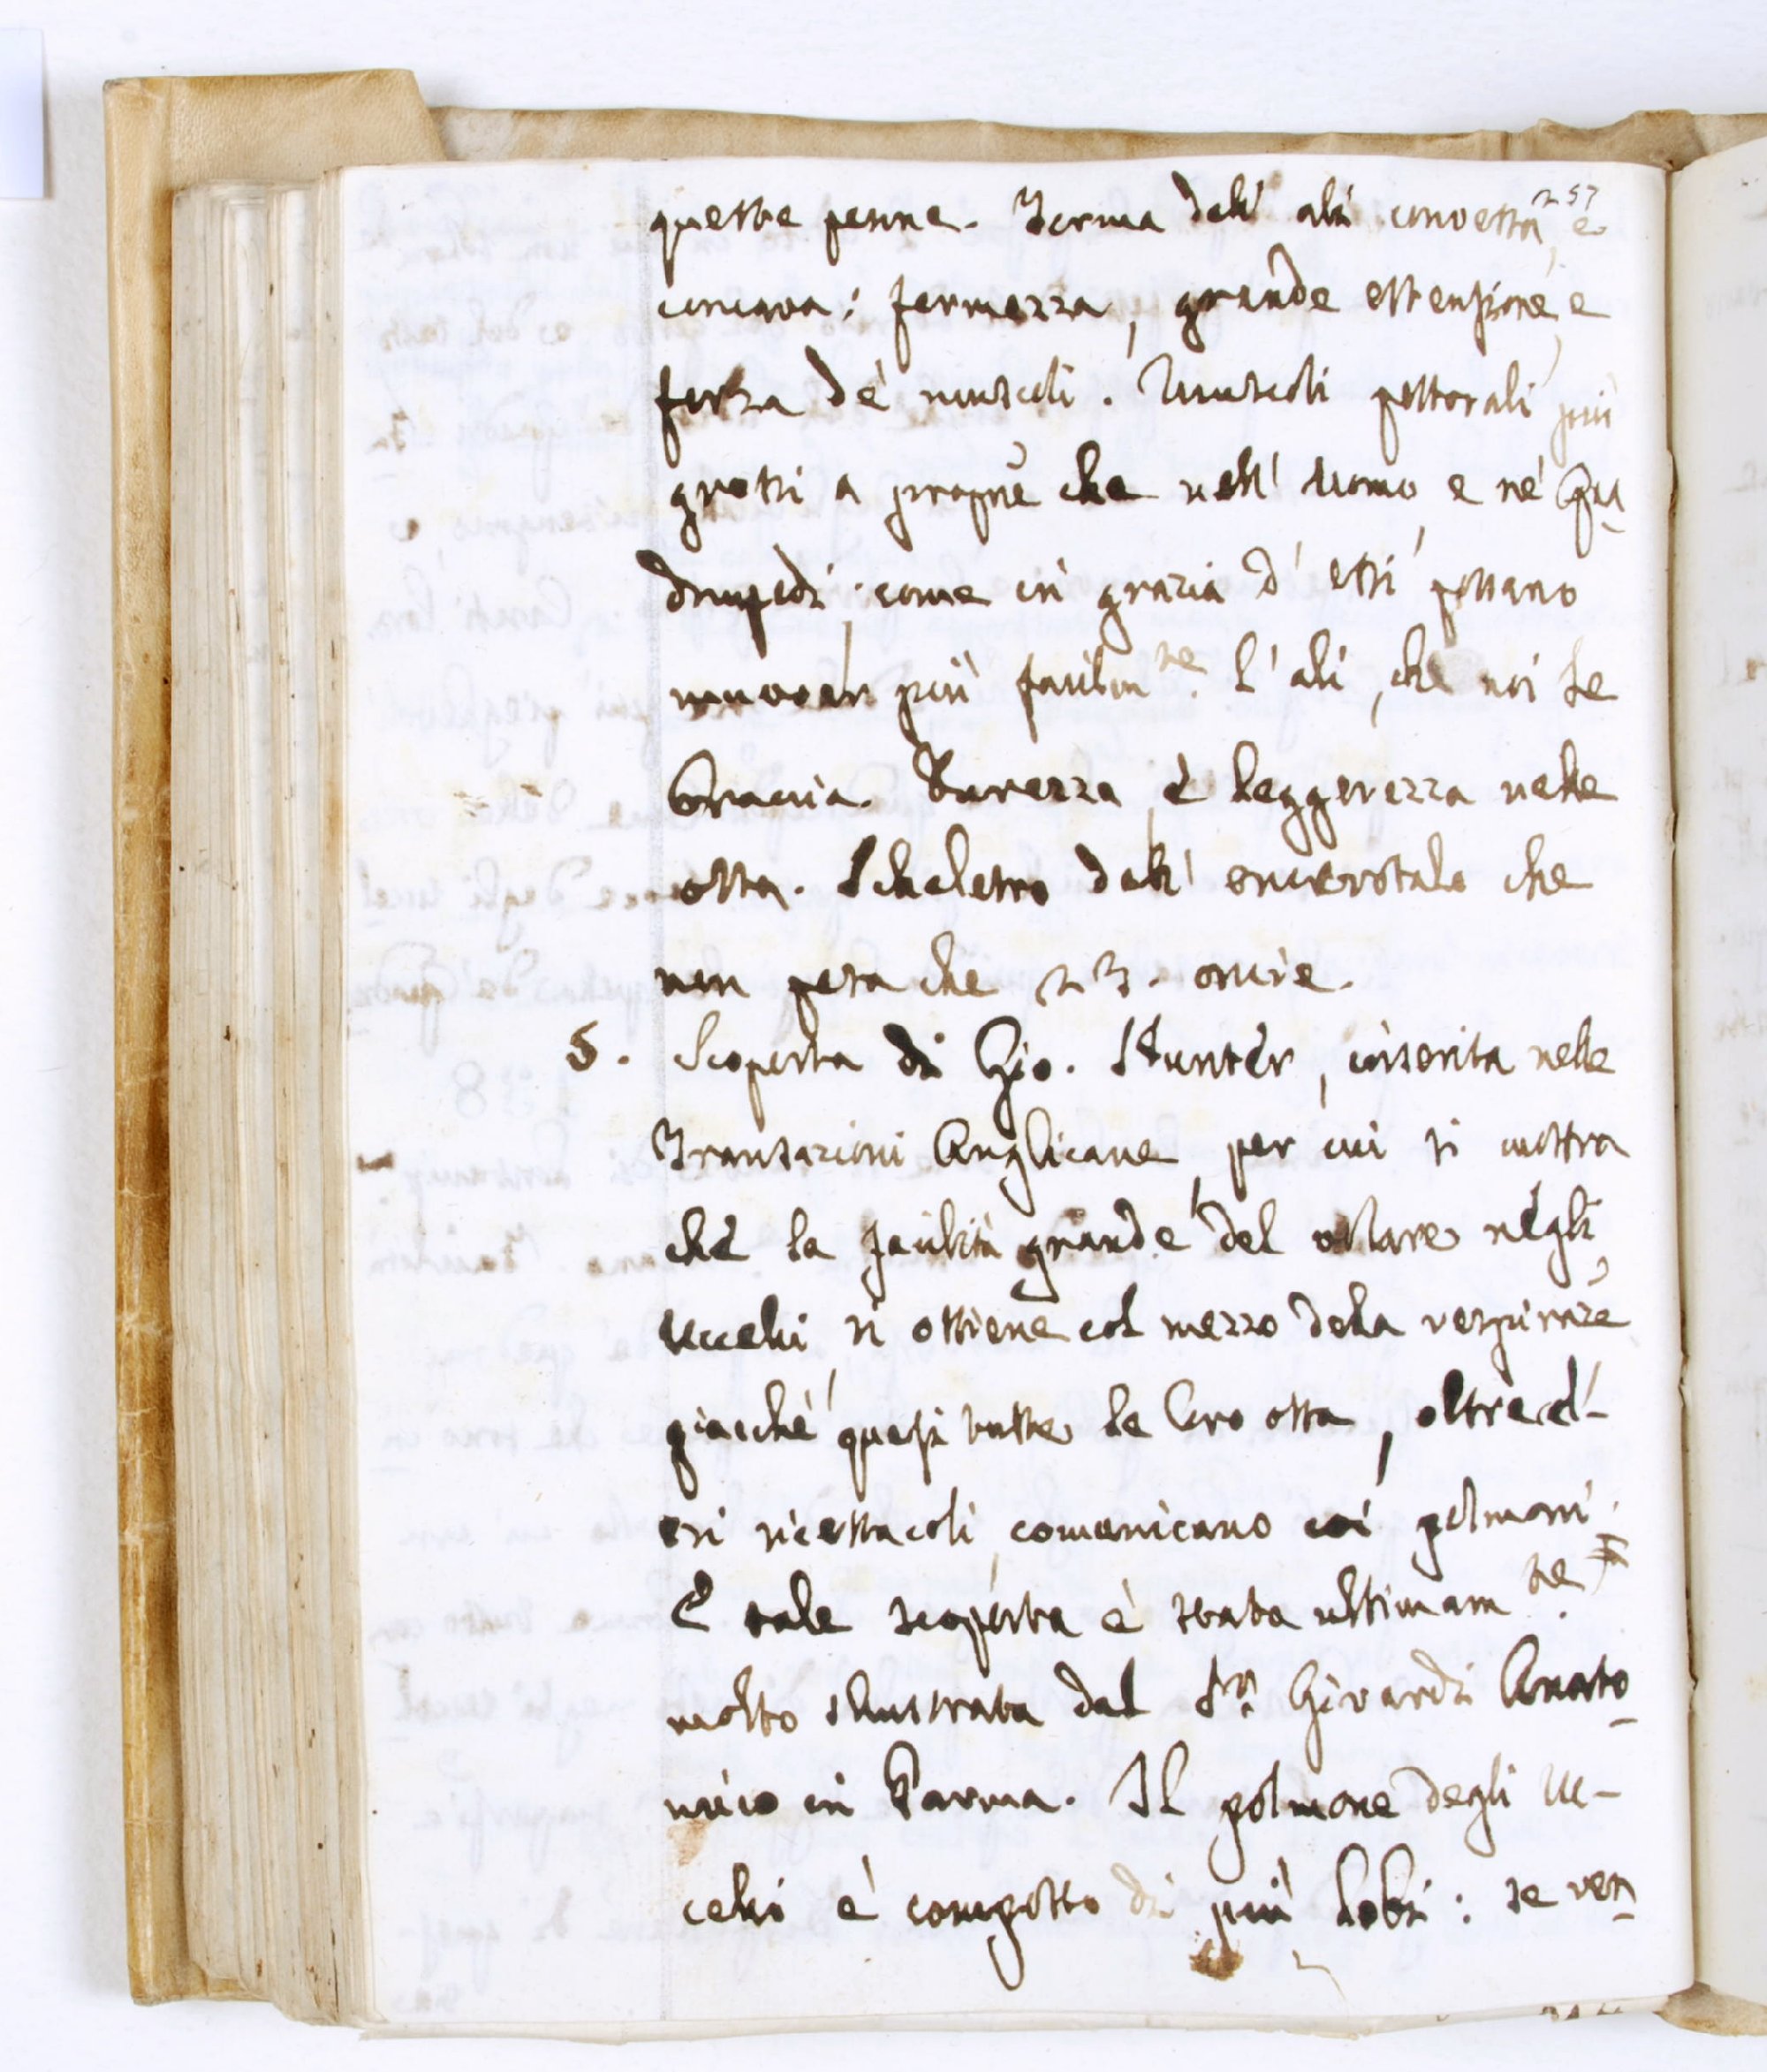 257
queste penne. Forma dell' ala convessa, e
concava: fermezza, grande estensione, e
forza de' muscoli. Muscoli pettorali più
grossi a propne che nell' uomo, e ne' Qua-
drupedi: come in grazia d' essi possano
muover più facilmte. l' ali, che noi le
braccia. Durezza, e leggerezza nelle
ossa. Scheletro dell' onocrotalo che
non pesa che 23. oncie.
5. Scoperta di Gio. Hunter, inserita nelle
Transazioni Anglicane, per cui si mostra
che la facilità grande del volare negli
Uccelli si ottiene col mezzo della respirazne
giacchè quasi tutte le loro ossa, oltre d'-
eri ricettacoli comunicano coi polmoni.
E tale scoperta è stata ultimamte.
molto illustrata dal Sr. Girardi Anato-
mico in Parma. Il polmone degli Uc-
celli è composto di più lobi: se ven-